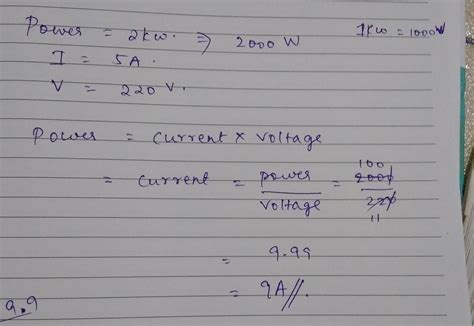 Power = 2kw. ⇒ 2000 W 1kw = 1000W
I = 5A.
V = 220 V.
Power = Current × Voltage
= Current = power / Voltage = 2000 / 220
100
11
= 9.99
= 9A//.
9.9